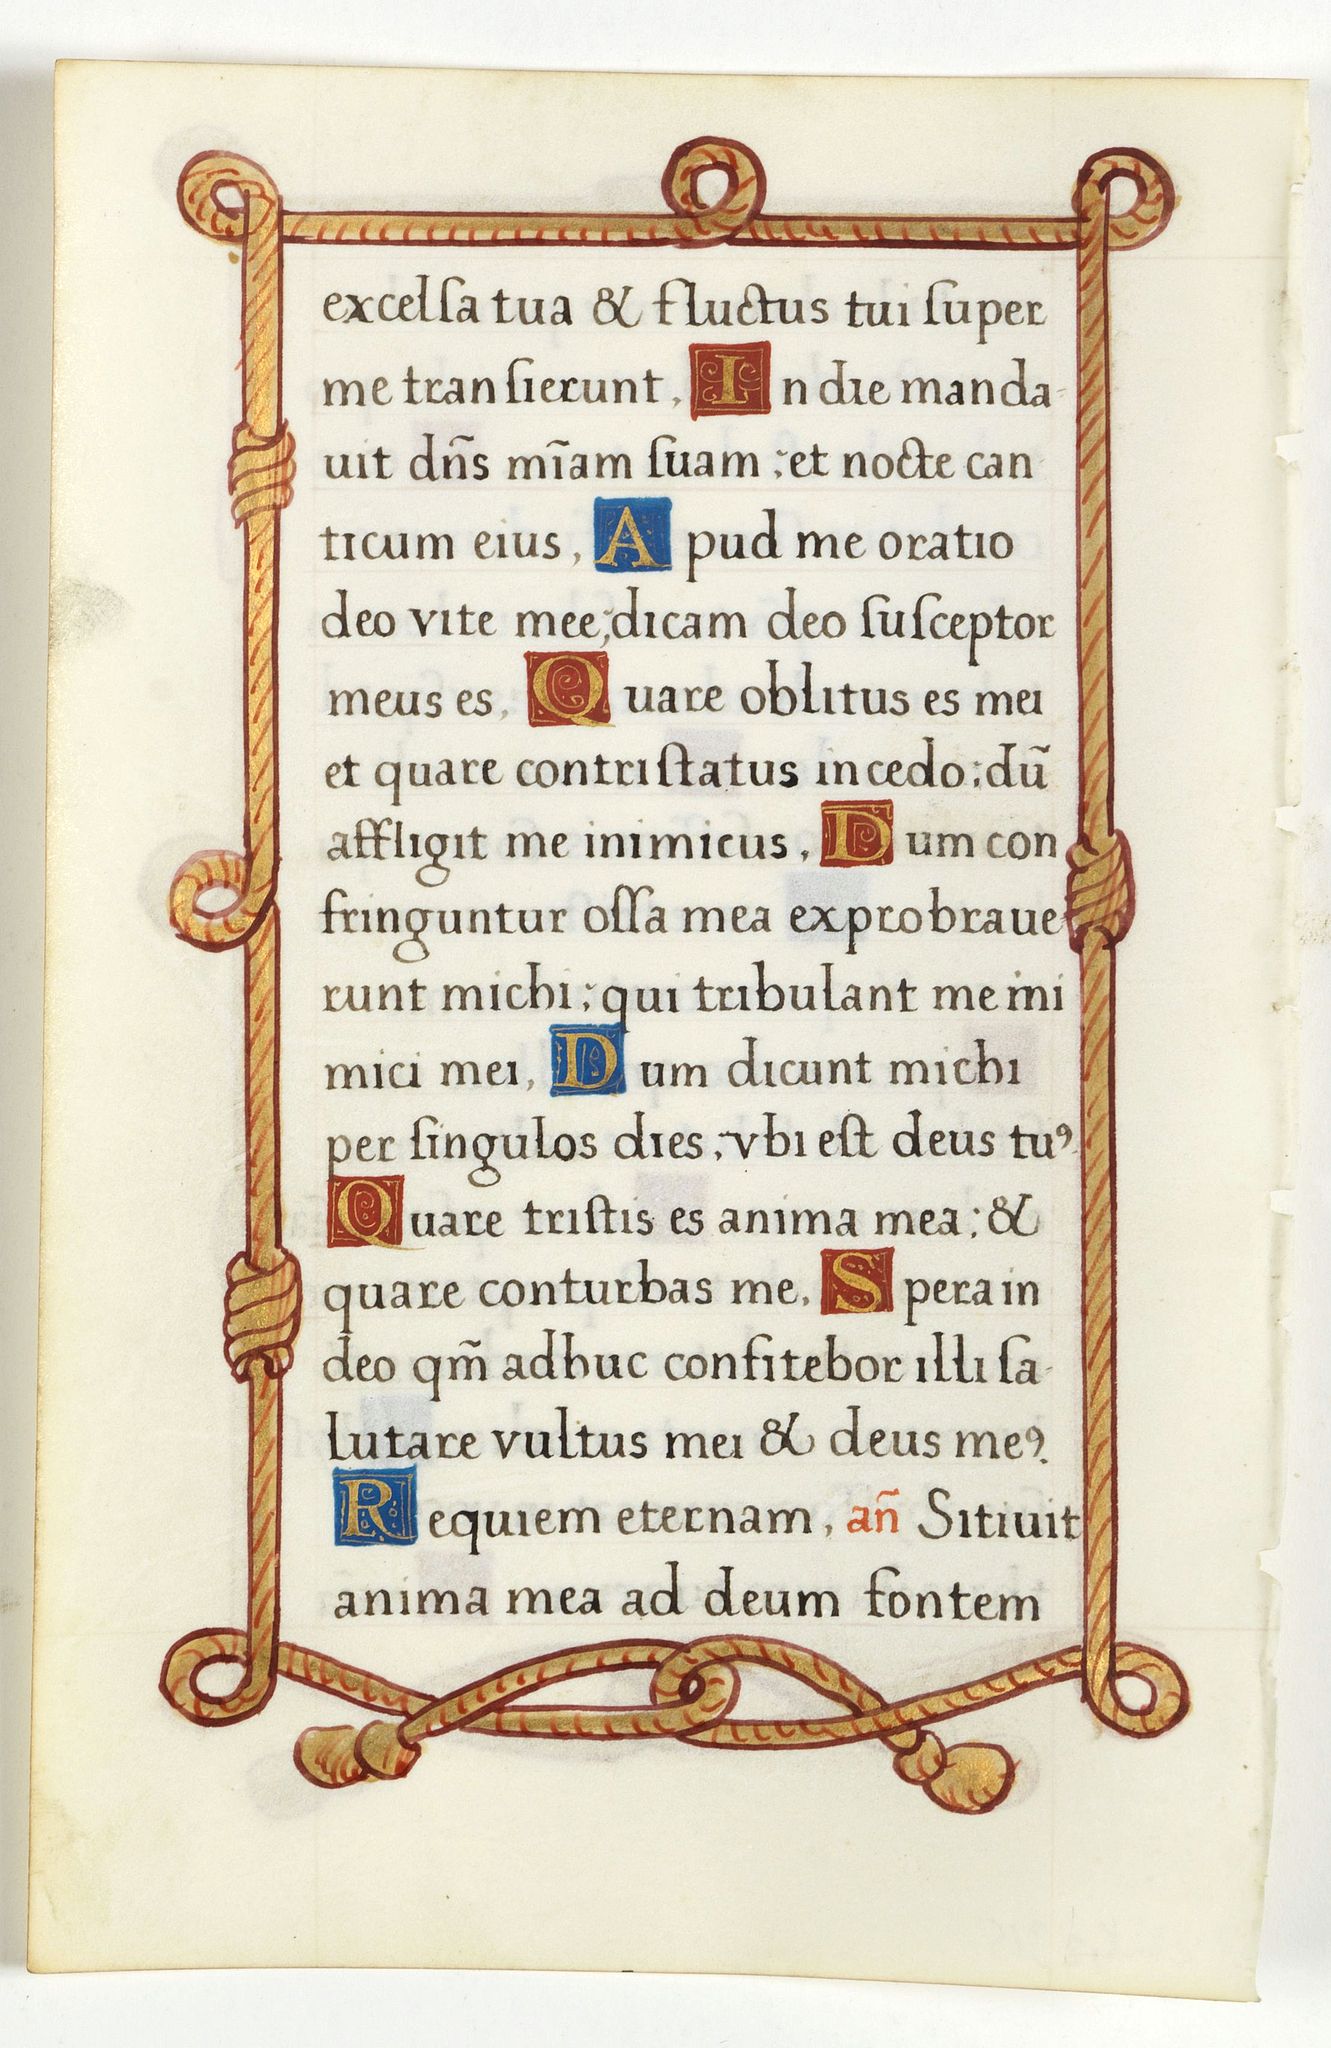 excelſa tua & fluctus tui ſuper
me tranſierunt, In die manda-
uit dñs mĩam ſuam : et nocte can
ticum eius, Apud me oratio
deo vite mee; dicam deo ſuſceptor
meus es, Quare oblitus es mei
et quare contriſtatus incedo : dũ
affligit me inimicus, Dum con
fringuntur oſſa mea exprobraue-
runt michi : qui tribulant me ini
mici mei, Dum dicunt michi
per ſingulos dies : vbi eſt deus tuꝰ
Quare triſtis es anima mea : &
quare conturbas me, Spera in
deo qm̃ adhuc confitebor illi ſa-
lutare vultus mei & deus meꝰ.
Requiem eternam, añ Sitiuit
anima mea ad deum fontem